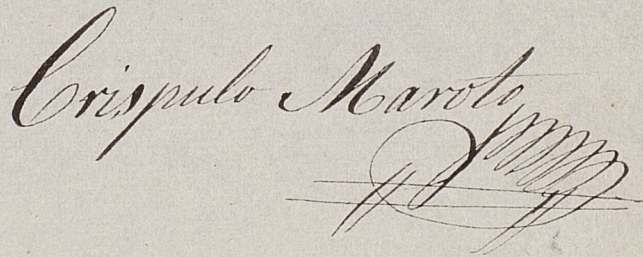 Crispulo Maroto